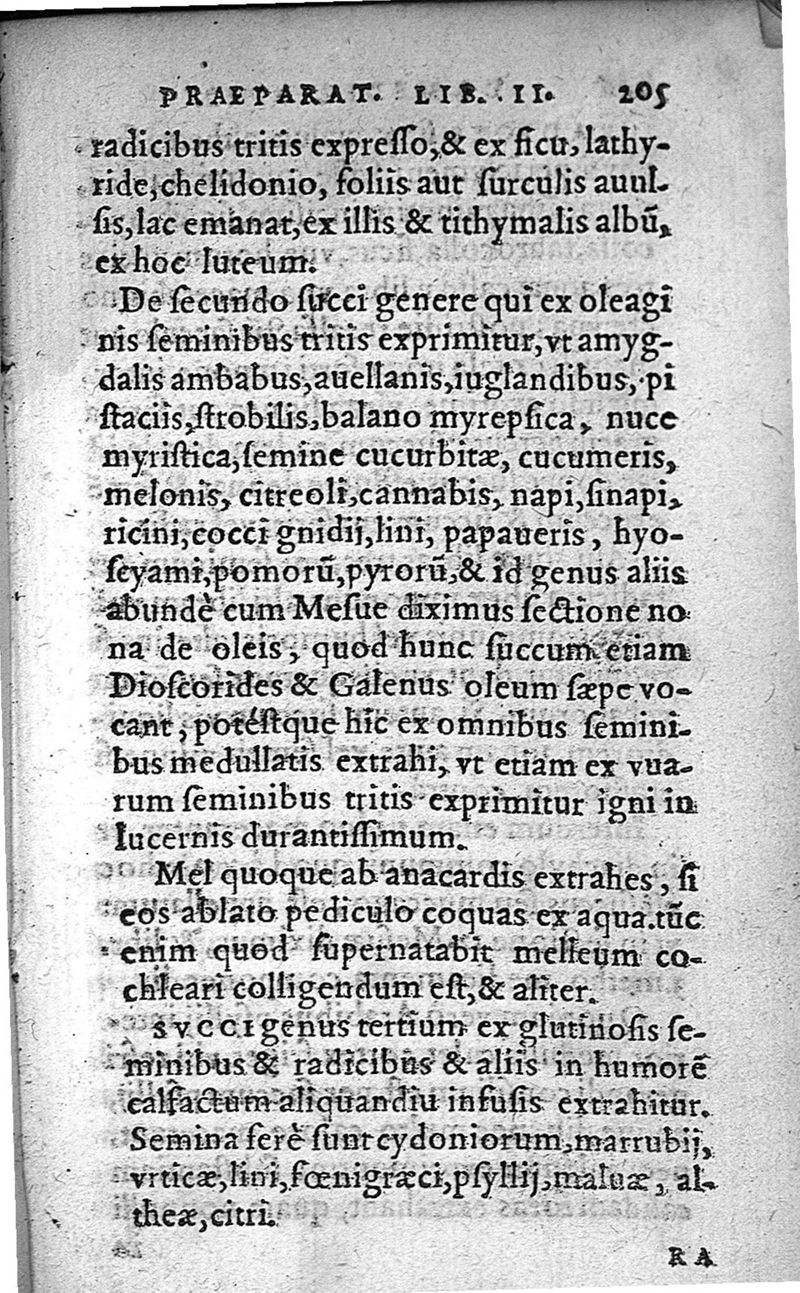 PRAEPARAT. LIB. II. 205
radicibus tritis expreſſo, & ex ficu, lathy-
ride, chelidonio, foliis aut ſurculis auul-
ſis, lac emanat, ex illis & tithymalis albũ,
ex hoc luteum.
De ſecundo ſucci genere qui ex oleagi
nis ſeminibus tritis exprimitur, vt amyg-
dalis ambabus, auellanis, iuglandibus, pi
ſtaciis, ſtrobilis, balano myrepſica, nuce
myriſtica, ſemine cucurbitæ, cucumeris,
melonis, citreoli, cannabis, napi, ſinapi,
ricini, cocci gnidij, lini, papaueris, hyo-
ſcyami, pomorũ, pyrorũ, & id genus aliis
abundè cum Meſue diximus ſectione no
na de oleis, quod hunc ſuccum etiam
Dioſcorides & Galenus oleum ſæpe vo-
cant, potéſtque hic ex omnibus ſemini-
bus medullatis extrahi, vt etiam ex vua-
rum ſeminibus tritis exprimitur igni in
lucernis durantiſſimum.
Mel quoque ab anacardis extrahes, ſi
eos ablato pediculo coquas ex aqua. tũc
enim quod ſupernatabit melleum co-
chleari colligendum eſt, & aliter.
SVCCI genus tertium ex glutinoſis ſe-
minibus & radicibus & aliis in humorẽ
calfactum aliquandiu infuſis extrahitur.
Semina ferè ſunt cydoniorum, marrubij,
vrticæ, lini, fœnigræci, pſyllij, maluæ, al-
theæ, citri.
RA